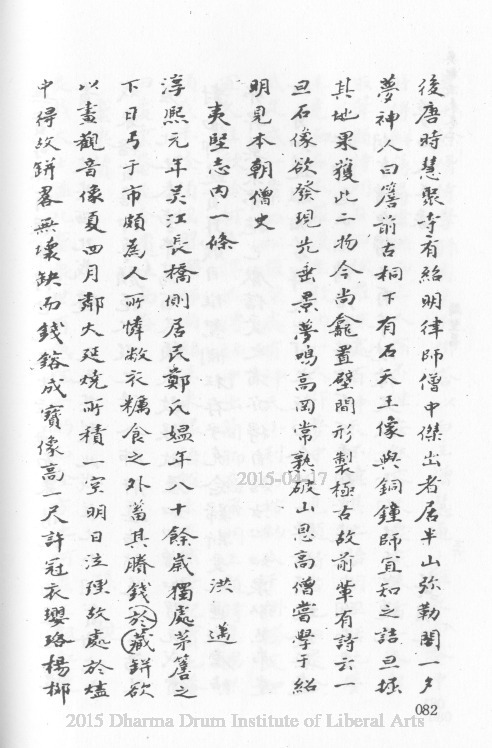 後唐時慧聚寺有紹明律師僧中傑出者居半山弥勒閣一夕
夢神人曰簷前古桐下有石天王像與銅鐘師宜知之詰旦掘
其地果獲此二物今尚龕置壁間形製極古故前輩有詩云一
旦石像欲發現先垂景夢鳴高岡常熟破山思高僧嘗學于紹
明見本朝僧史
夷堅志內一條 洪邁
淳熙元年吳江長橋側居民鄭氏媼年八十餘歲獨處茅簷之
下日丐于市頗為人所憐敝衣糲食之外蓄其勝錢於藏缾欲
以畫觀音像夏四月鄰火延燒所積一空明日泣理故處於燼
中得故缾畧無壞缺而錢鎔成寶像高一尺許冠衣瓔珞楊柳
2015-04-17
082
2015 Dharma Drum Institute of Liberal Arts